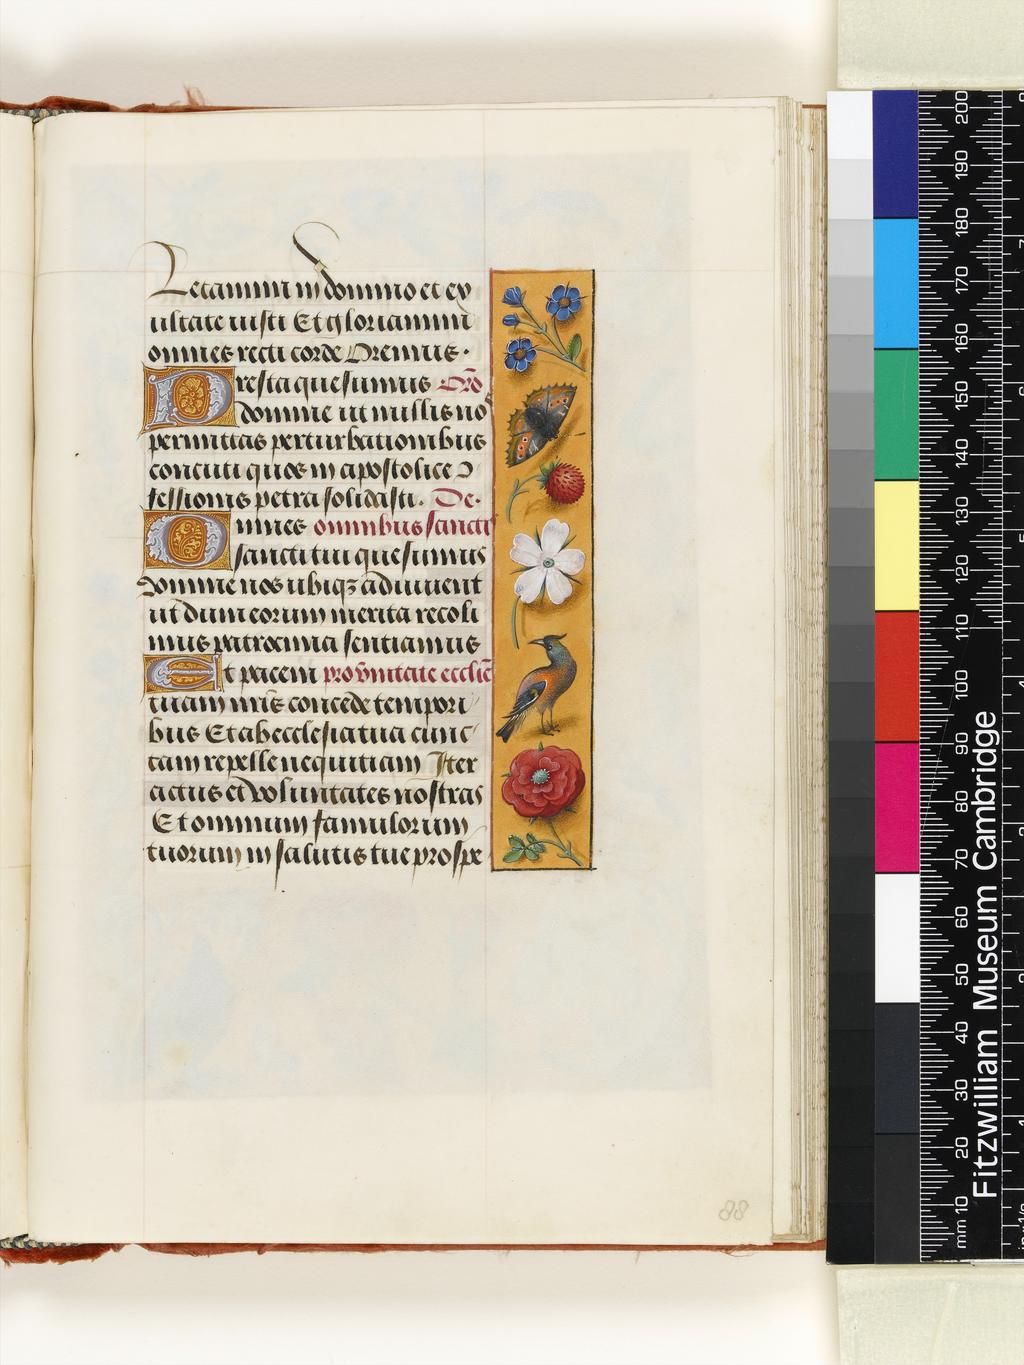 Letamini in domino et ex
ultate iusti Et gloriamini
omnes recti corde Oremus.
Presta quesumus Oro
domine ut nullis nos
permittas perturbationibus
concuti quos in apostolice
fessionis petra solidasti. De.
Omnes omnibus sanctis
sancti tui quesumus
domine nos ubiqz adiuvent
ut dum eorum merita recoli
mus patrocinia sentiamus
Et pacem pro unitate ecclie
tuam nris concede tempori
bus Et ab ecclesia tua cunc
tam repelle nequitiam Iter
actus et voluntates nostras
Et omnium famulorum
tuorum in salutis tue prospe
88
Fitzwilliam Museum Cambridge
mm 10 20 30 40 50 60 70 80 90 100 110 120 130 140 150 160 170 180 190 200